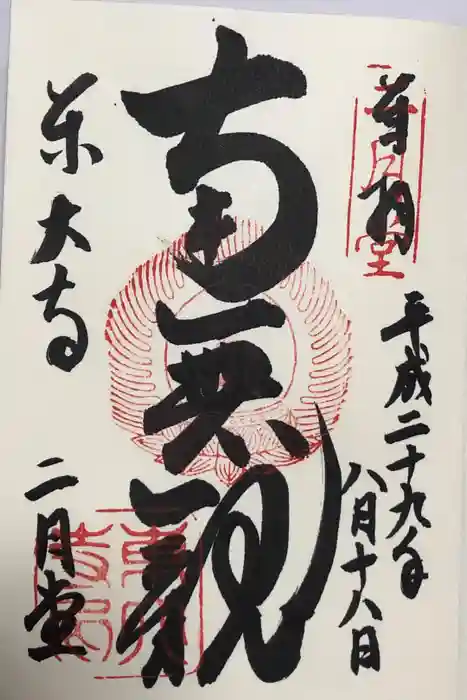 奉拝
平成二十九年
八月十八日
南無観
東大寺
二月堂